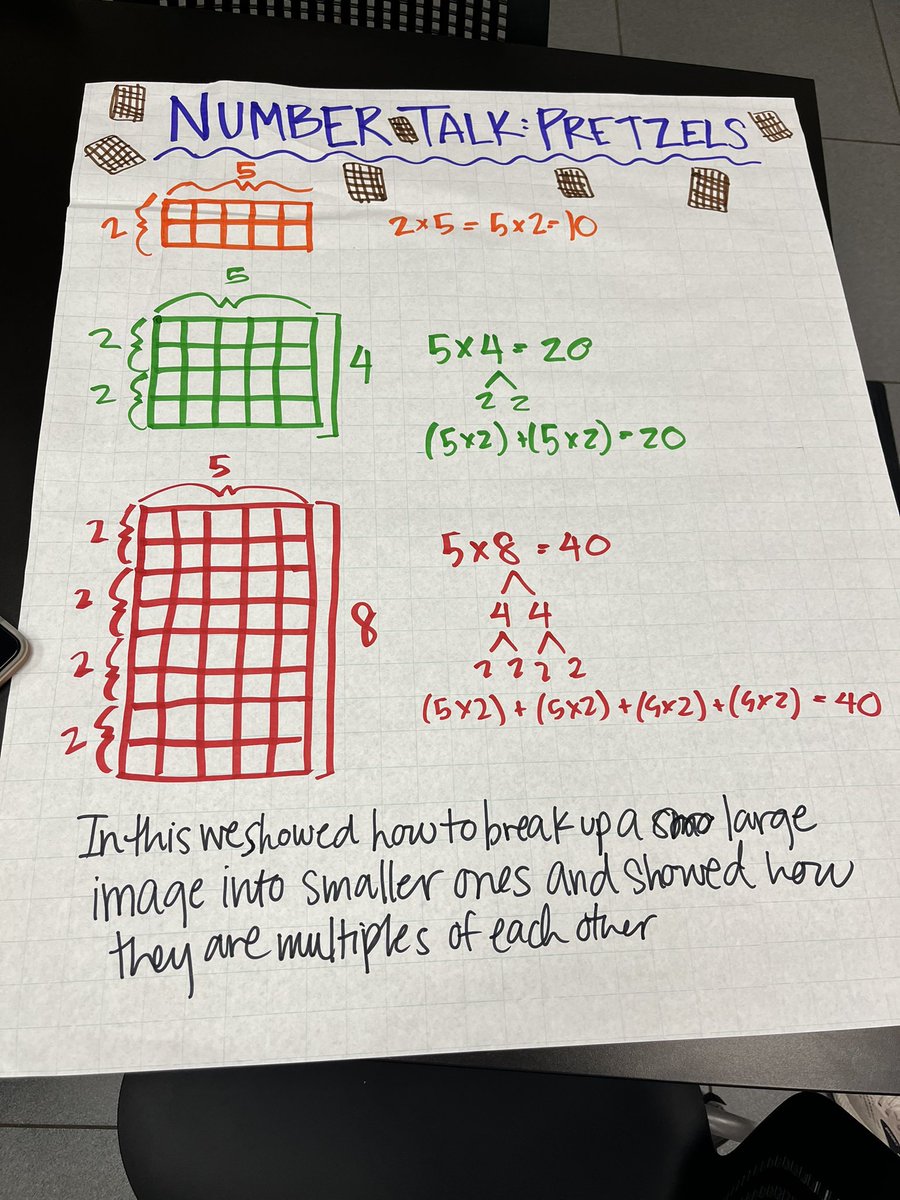 NUMBER TALK: PRETZELS
5
2
2×5 = 5×2=10
5
2
2
4
5×4 = 20
2 2
(5×2)+(5×2)=20
5
2
2
2
2
8
5×8 = 40
4 4
2 2 2 2
(5×2) + (5×2) + (5×2) + (5×2) = 40
In this we showed how to break up a large
image into smaller ones and showed how
they are multiples of each other